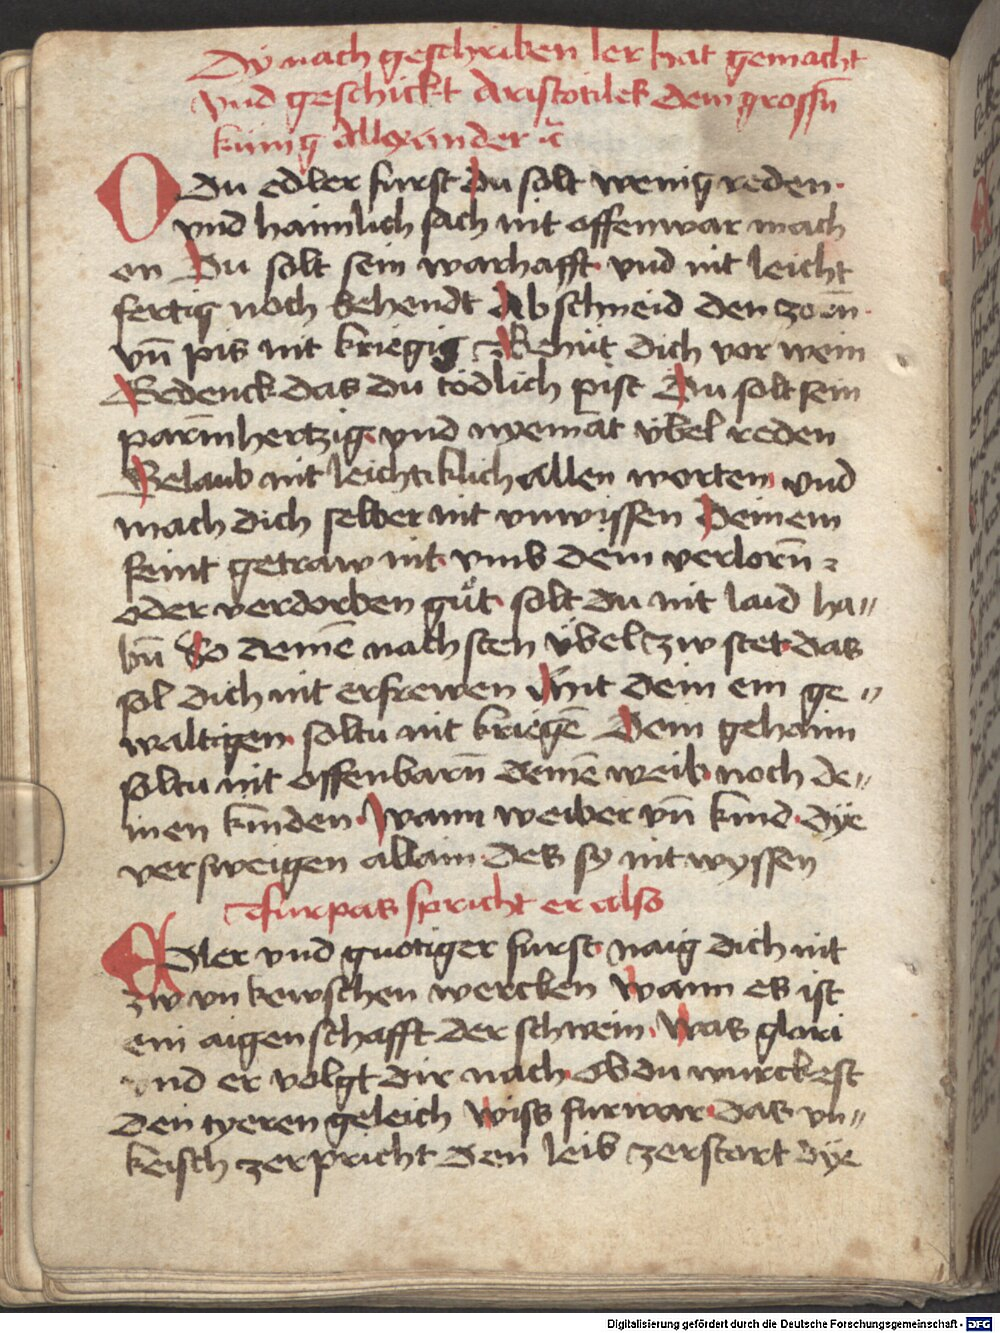 Dy nach geschriben ler hat gemacht
vnd geschickt Aristotiles dem grossn̄
künig Allexander ꝛc̄
O Du edler furst Du solt wenig reden
vnd haimlich sach nit offenwar mach
en Du solt sein warhafft vnd nit leicht
fertig noch behendt Ab schneid den zoen̄
vn̄ pis nit kriegig Behüt dich vor wein
Bedenck das du tödlich pist Du solt sein
parm̄hertzig vnd nyemāt vbel reden
Gelaub nit leichtiklich allen worten vnd
mach dich selber nit vnwissen Deinem
feint getraw nit vmb dem verlorn̄
oder verdorben gůt solt du nit laid ha〃
bn̄ So deinē nachsten übel zw stet das
sol dich nit erfrewen Mit dem ein ge〃
waltigen soltu nit kriegē Dein gehaim
soltu nit offenbarn̄ deinē weib noch de〃
inen kinden Wann weiber vn̄ kind dÿe
versweigen allain des sy nit wyssen
furpas spricht er also
Edler vnd guotiger furst naig dich nit
zw vn kewschen wercken Wann es ist
ein aigenschafft der schwein Was glori
vnd er volgt dir nach ob du wurckest
den tyeren geleich Wiss furwar das vn〃
keisch zerpricht den leib zerstört dÿe
Digitalisierung gefördert durch die Deutsche Forschungsgemeinschaft - DFG